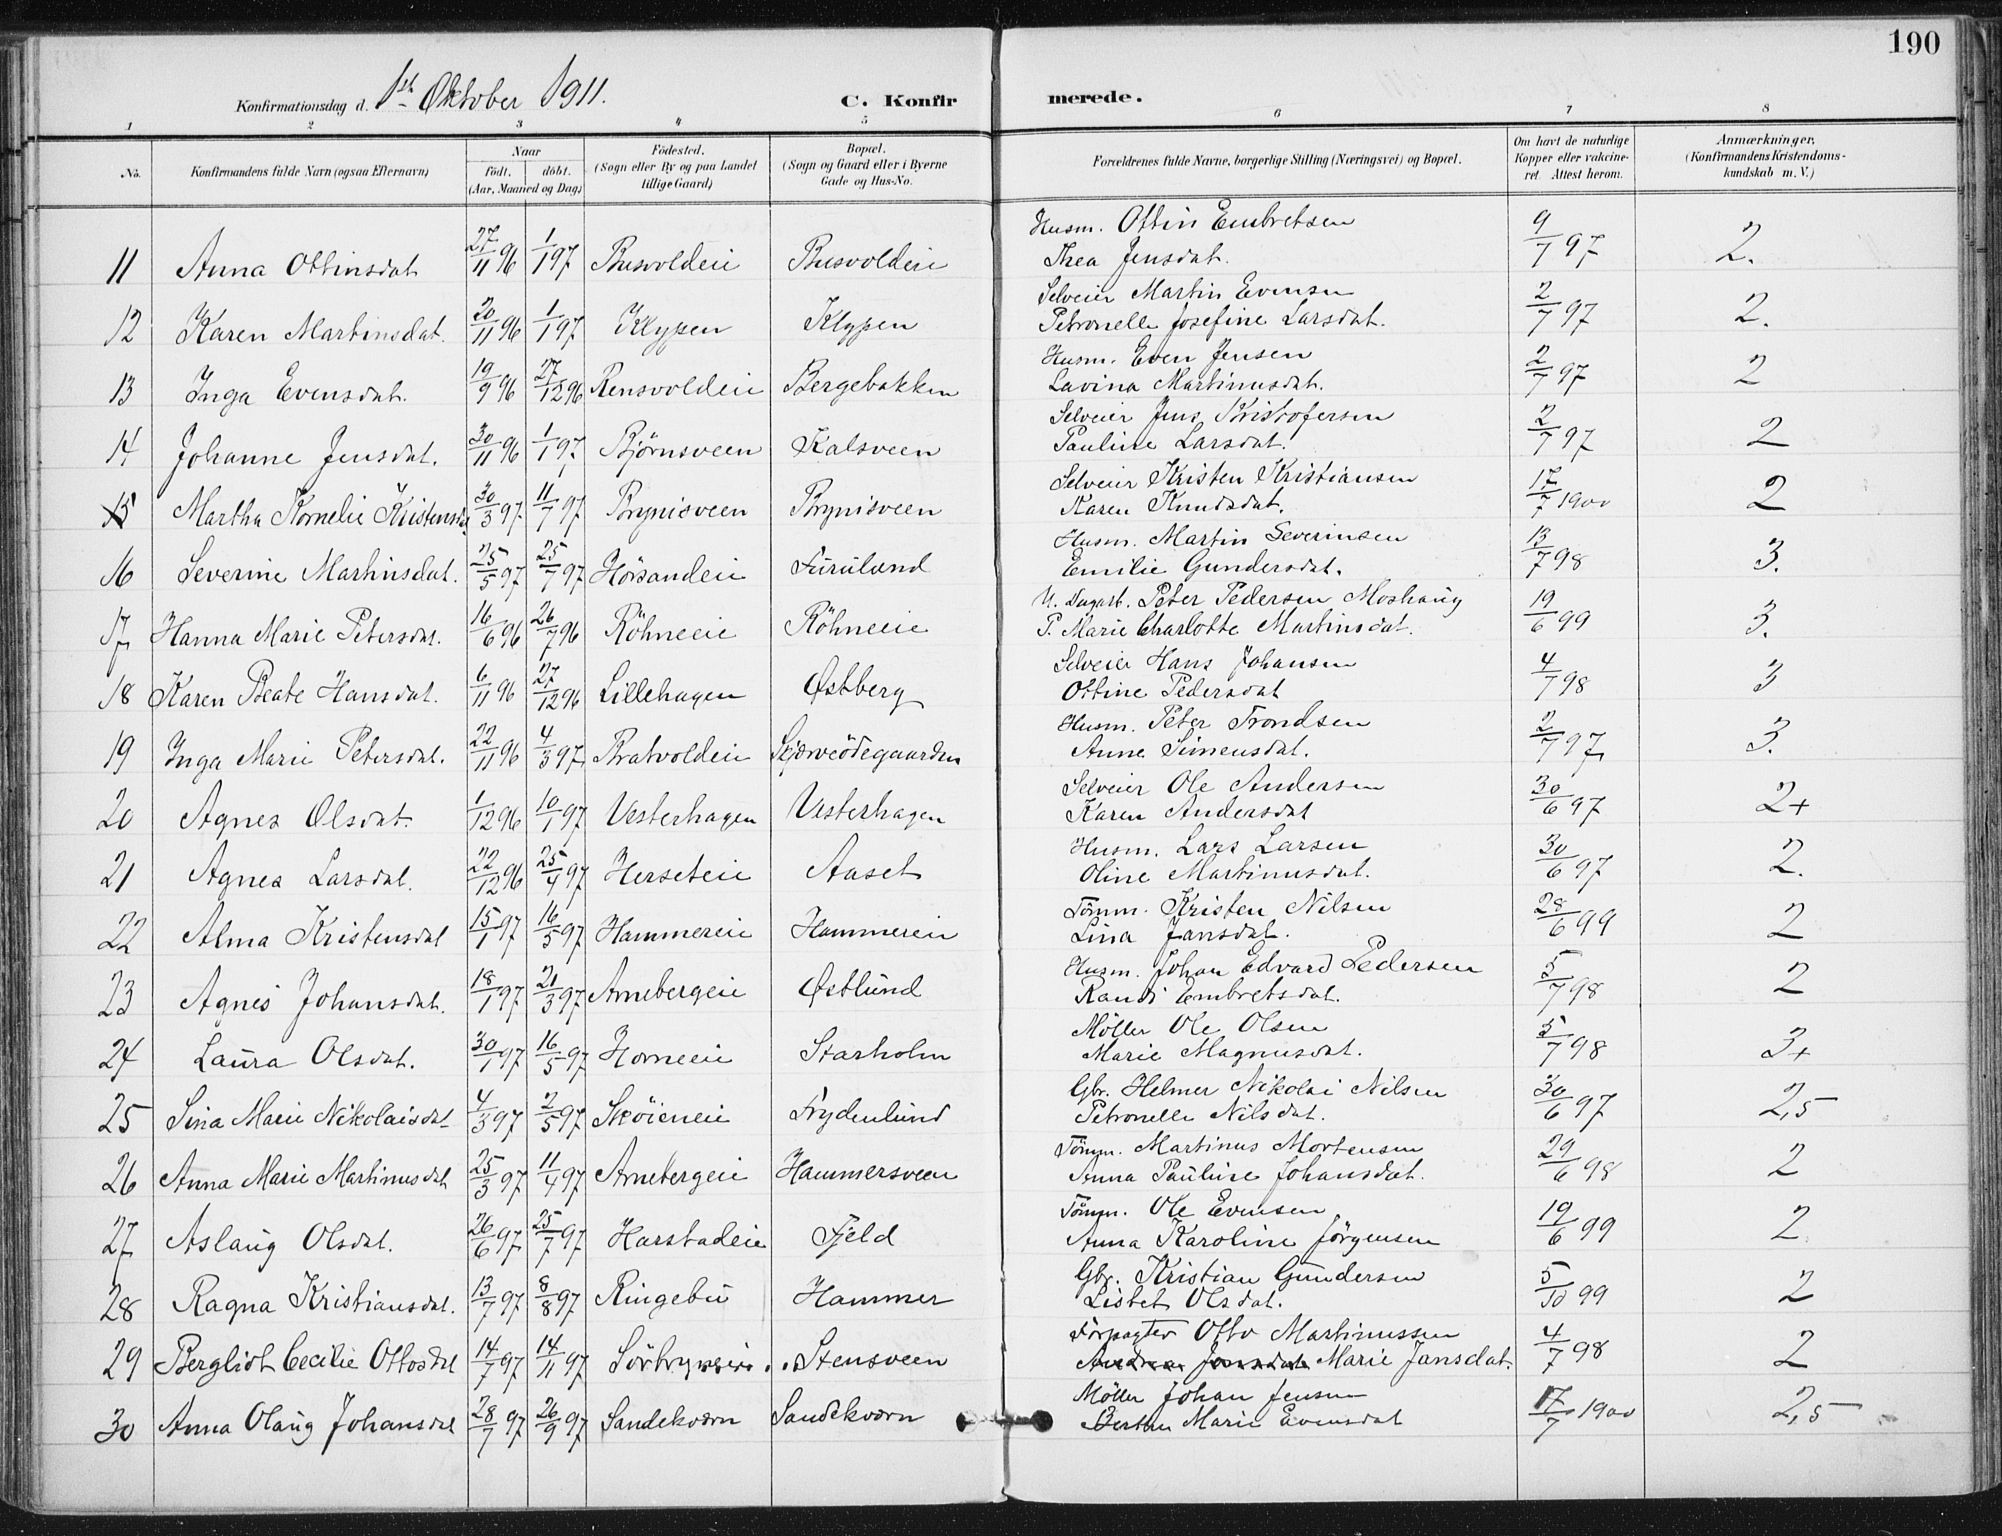 190
Konfirmationsdag d. 1ste Oktober 1911.
C. Konfirmerede.
1 2 3 4 5 6 7 8
No. Konfirmandens fulde Navn (ogsaa Efternavn) Naar født. døbt. (Aar, Maaned og Dag) Fødested. (Sogn eller By og paa Landet tillige Gaard) Bopæl. (Sogn og Gaard eller i Byerne Gade og Hus-No. Forældrenes fulde Navne, borgerlige Stilling (Næringsvei) og Bopæl. Om havt de naturlige Kopper eller vakcineret. Attest herom. Anmærkninger. (Konfirmandens Kristendomskundskab m. V.)
11 Anna Ottinsdat 27/11 96 1/1 97 Busvoldeie Busvoldeie Husm. Ottin Embretsen 9/7 97 2.
Thea Jensdat.
12 Karen Martinsdat. 20/11 96 1/1 97 Klypen Klypen Selveier Martin Evensen 2/7 97 2.
Petronelle Josefine Larsdat.
13 Inga Evensdat. 19/9 96 27/12 96 Rensvoldeie Bergebakken Husm. Even Jensen 2/7 97 2
Lavina Martinusdat.
14 Johanne Jensdat. 30/11 96 1/1 97 Bjørnsveen Kalsveen Selveier Jens Kristofersen 2/7 97 2
Pauline Larsdat.
15 Martha Kornelie Kristensdat 30/3 97 11/7 97 Brynisveen Brynisveen Selveier Kristen Kristiansen 17/7 1900 2
Karen Knudsdat.
16 Severine Martinsdat. 25/5 97 25/7 97 Hørsandeie Furulund Husm. Martin Severinsen 13/7 98 3.
Emilie Gundersdat.
17 Hanna Marie Petersdat. 16/6 96 26/7 96 Röhneeie Röhneeie U. Dagarb. Peter Pedersen Moshaug 19/6 99 3.
P. Marie Charlotte Martinsdat.
18 Karen Beate Hansdat. 6/11 96 27/12 96 Lillehagen Østberg Selveier Hans Johansen 4/7 98 3
Ottine Pedersdat
19 Inga Marie Petersdat. 22/11 96 4/3 97 Bratvoldeie Skjærveödegaarden Husm. Peter Trondsen 2/7 97 3.
Anne Simensdat.
20 Agnes Olsdat. 1/12 96 10/1 97 Vesterhagen Vesterhagen Selveier Ole Andersen 30/6 97 2+
Karen Andersdat
21 Agnes Larsdat. 22/12 96 25/4 97 Herseteie Aaset Husm. Lars Larsen 30/6 97 2.
Oline Martinusdat.
22 Alma Kristensdat 15/1 97 16/5 97 Hammereie Hammereie Tömm. Kristen Nilsen 28/6 99 2
Lina Jansdat.
23 Agnes Johansdat. 18/1 97 21/3 97 Arnebergeie Østlund Husm. Johan Edvard Pedersen 5/7 98 2
Randi Embretsdat.
24 Laura Olsdat. 30/1 97 16/5 97 Horneeie Starholm Møller Ole Olsen 5/7 98 3+
Marie Magnusdat.
25 Sina Marie Nikolaisdat 4/3 97 2/5 97 Skøieneie Frydenlund Gbr. Helmer Nikolai Nilsen 30/6 97 2,5
Petronelle Nilsdat.
26 Anna Marie Martinusdat 25/3 97 11/4 97 Arnebergeie Hammersveen Tömm. Martinus Mortensen 29/6 98 2
Anna Pauline Johansdat.
27 Aslaug Olsdat. 26/6 97 25/7 97 Harstadeie Fjeld Tömm. Ole Evensen 19/6 99 2
Anna Karoline Jörgensen
28 Ragna Kristiansdat. 13/7 97 8/8 97 Ringebu Hammer Gbr. Kristian Gundersen 5/10 99 2
Lisbet Olsdat.
29 Bergliot Cecilie Ottosdat 14/7 97 14/11 97 Sörbryneie Stensveen Forpagter Otto Martinussen 4/7 98 2
Andrea Jonsdat. Marie Jansdat.
30 Anna Olaug Johansdat 28/7 97 26/9 97 Sandekværn Sandekværn Møller Johan Jensen 17/7 1900 2,5
Berthe Marie Evensdat